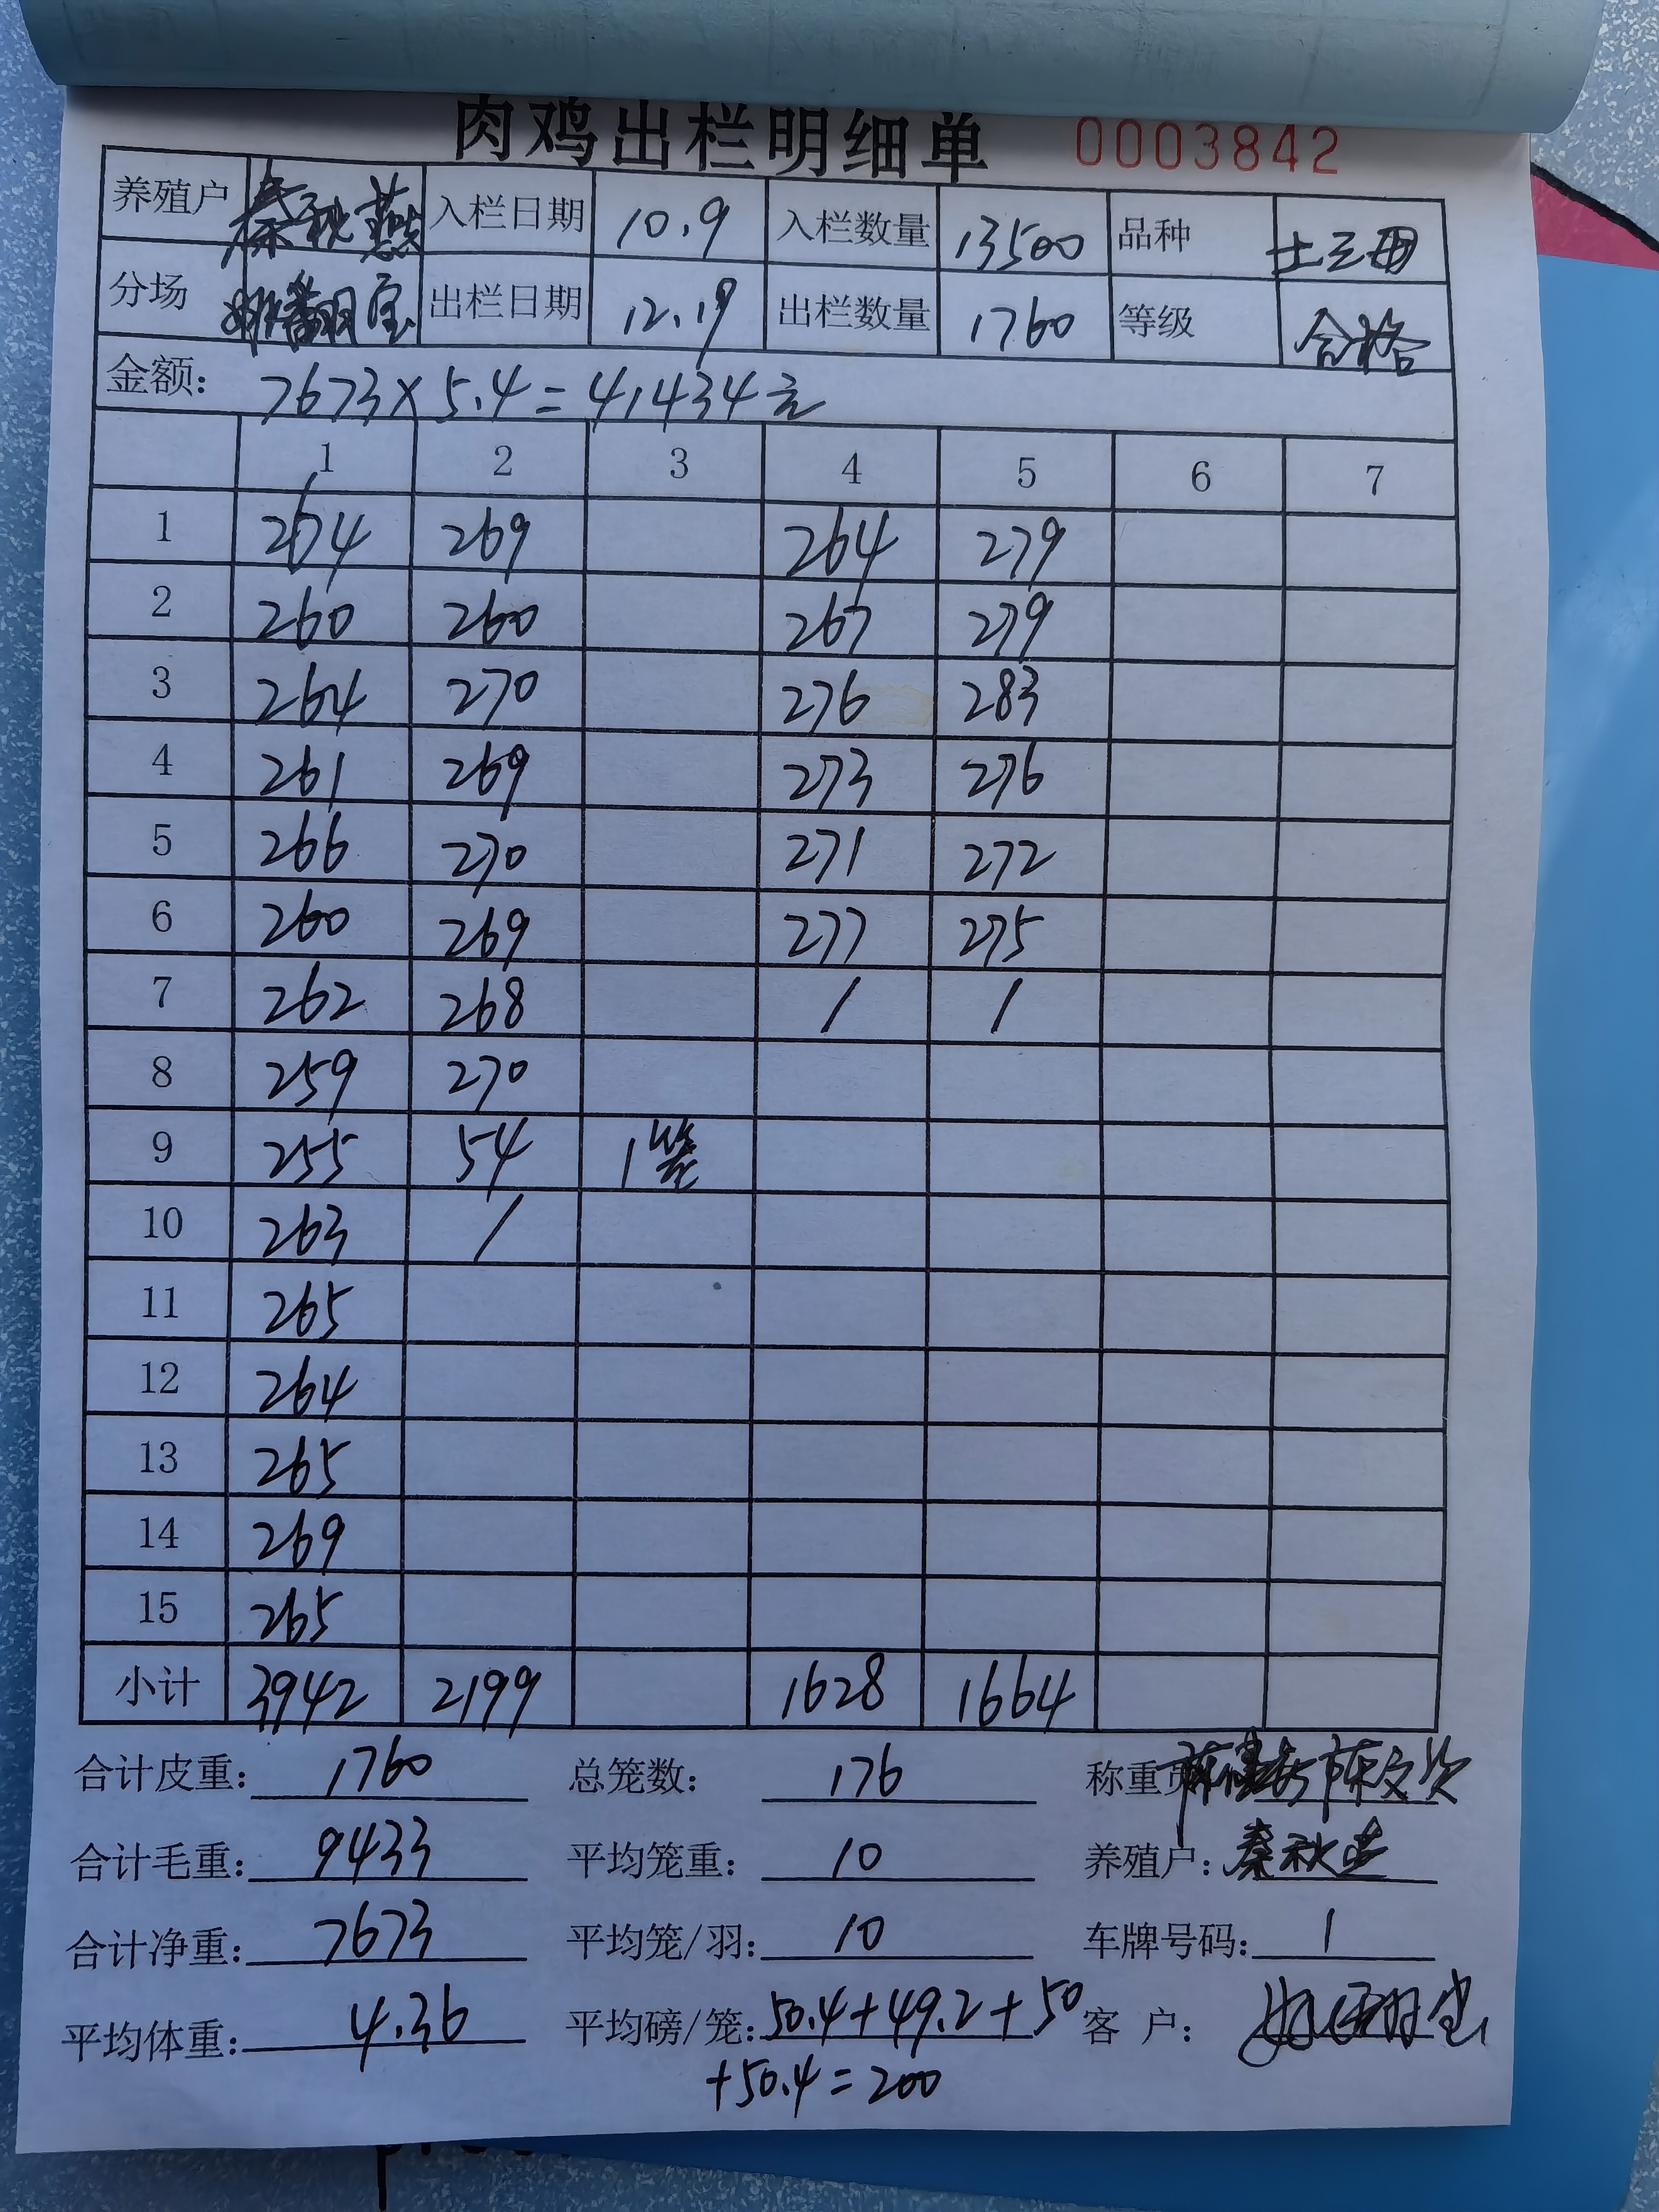 肉鸡出栏明细单 0003842
养殖户 秦秋燕 入栏日期 10.9 入栏数量 13500 品种 土三
分场 翻宝 出栏日期 12.19 出栏数量 1760 等级 合格
金额: 7673×5.4=41434元
1 2 3 4 5 6 7
1 274 269 264 279
2 260 260 267 279
3 264 270 276 283
4 261 269 273 276
5 266 270 271 272
6 260 269 277 275
7 262 268 / /
8 259 270
9 255 54 1笼
10 263 /
11 265
12 264
13 265
14 269
15 265
小计 3942 2199 1628 1664
合计皮重: 1760 总笼数: 176 称重员 陈文
合计毛重: 9433 平均笼重: 10 养殖户: 秦秋燕
合计净重: 7673 平均笼/羽: 10 车牌号码: 1
平均体重: 4.36 平均磅/笼: 50.4+49.2+50 客 户:
+50.4=200